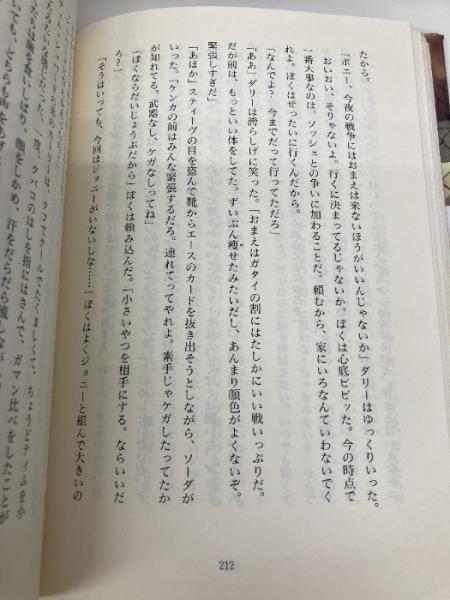 たから。
「ポニー、今夜の戦争にはおまえは来ないほうがいいんじゃないか」ダリーはゆっくりいった。
おいおい、そりゃないよ。行くに決まってるじゃないか。ぼくは心底ビビッた。今の時点で
一番大事なのは、ソッシュとの争いに加わることだ。頼むから、家にいろなんていわないでく
れよ。ぼくはぜったいに行くんだから。
「なんでよ？ 今までだって行ってただろ」
「ああ」ダリーは誇らしげに笑った。「おまえはガタイの割にはたしかにいい戦いっぷりだ。
だが前は、もっといい体をしてた。ずいぶん痩せたみたいだし、あんまり顔色がよくないぞ。
緊張しすぎだ」
「あほか」スティーヴの目を盗んで靴からエースのカードを抜き出そうとしながら、ソーダが
いった。「ケンカの前はみんな緊張するだろ。連れてってやれよ。素手じゃケガしたってたか
が知れてる。武器なし、ケガなしってね」
「ぼくならだいじょうぶだから」ぼくは頼み込んだ。「小さいやつを相手にする。ならいいだ
ろ？」
「そうはいっても、今回はジョニーがいないしな……」ぼくはよくジョニーと組んで大きいの
212